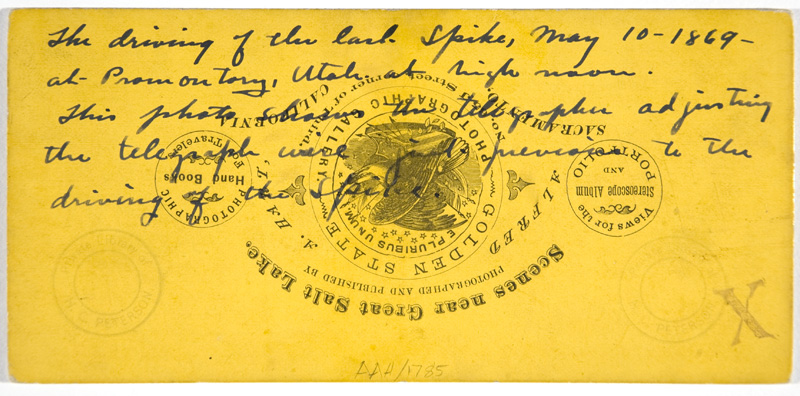 The driving of the last Spike, May 10-1869-
at Promontory, Utah at high noon.
This photo shows the telegrapher adjusting
the telegraph wire just previous to the
driving of the Spike.
Scenes near Great Salt Lake,
PHOTOGRAPHED AND PUBLISHED BY
ALFRED A. HART,
GOLDEN STATE
PHOTOGRAPHIC GALLERY,
E PLURIBUS UNUM
SACRAMENTO, CALIFORNIA
PHOTOGRAPHIC
Hand Books
For Travelers
Views for the
Stereoscope Album
AND
PORTFOLIO
PETERSON
X
AAH/1785